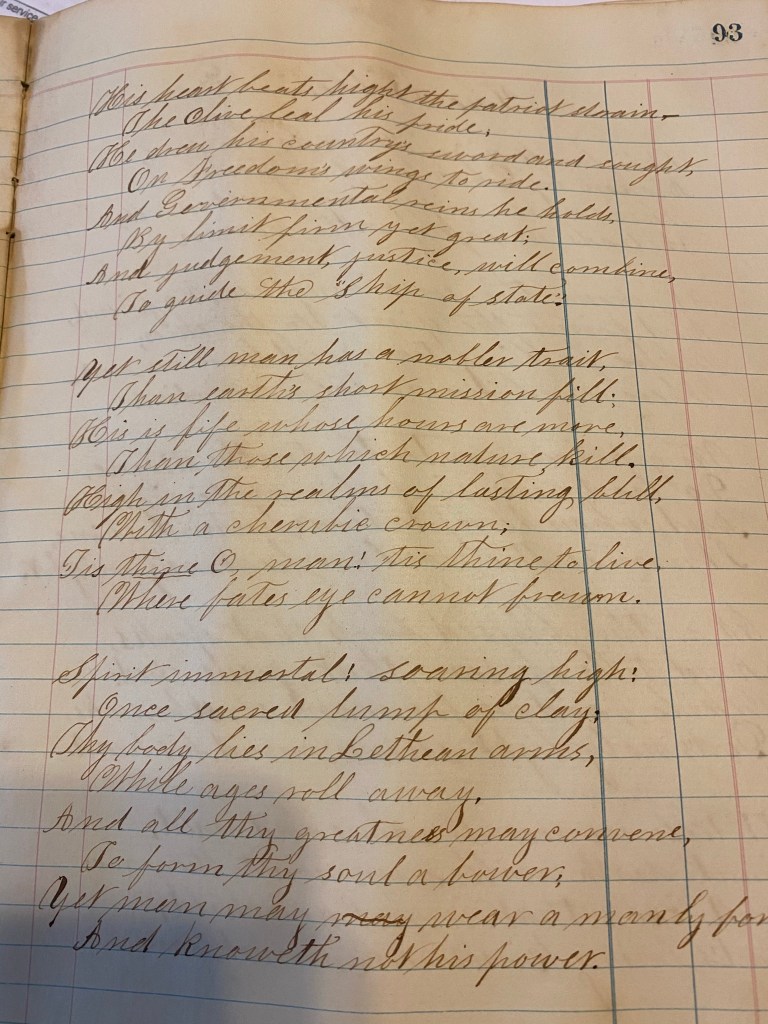 service
93
His heart beats hight the patriot strain,
The Olive leaf his pride,
He drew his country's sword and sought,
On Freedom's wings to ride.
And Governmental reins he holds,
By limit firm yet great;
And judgement, justice, will combine,
To guide the "Ship of state."
Yet still man has a nobler trait,
Than earth's short mission fill;
His is life whose hours are more,
Than those which nature kill.
High in the realms of lasting bliss,
With a cherubic crown;
Tis thine O, man! tis thine to live,
Where fates eye cannot frown.
Spirit immortal! soaring high!
Once sacred lump of clay;
Thy body lies in Lethean arms,
While ages roll away,
And all thy greatness may convene,
To form thy soul a bower;
Yet man may may wear a manly for
And knoweth not his power.